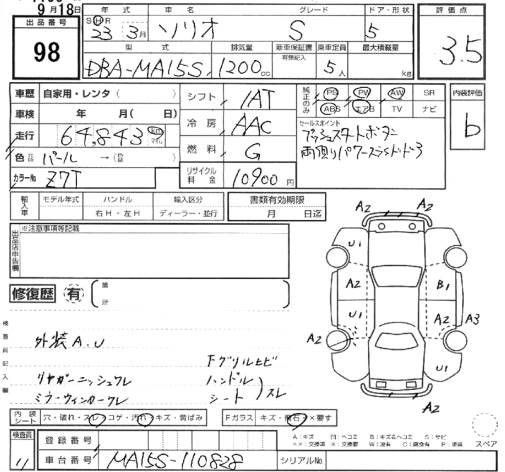 9月18日
出品番号 98
年式 SHR 23年 3月
車名 ソリオ
グレード S
ドア・形状 5
評価点 3.5
型式 DBA-MA15S
排気量 1200cc
新車保証書 有無記入
乗車定員 5人
最大積載量 kg
車歴 自家用・レンタ( )
シフト IAT
純正のみ PS PW AW SR
ABS エアB TV ナビ
内装評価 b
車検 年 月( 日)
冷房 AAC
走行 64,843 km マイル
セールスポイント
プッシュスタートボタン
燃料 G
色 パール →
カラーNo Z7T
リサイクル料金 10900円
輸入車 モデル年式 ハンドル 右H・左H 輸入区分 ディーラー・並行
書類有効期限 月 日迄
出品店申告欄 ※注意事項等記載
修復歴 有 箇所
A2 A2
U1 U1
A2 A2 B1
A2 U1 U1 A3
A2 A2
検査員記入欄
外装A.U
Fグリルヒビ
リヤガーニッシュワレ ハンドル
ミラーウィンカーワレ シート スレ
内装シート 穴・破れ・スレ コゲ・汚れ キズ・黄ばみ
Fガラス キズ・飛石 ×要す
A：キズ M：ヘコミ B：キズ&ヘコミ S：サビ
スペア
検査員 11
登録番号
車台番号 MA15S-110828
シリアルNo